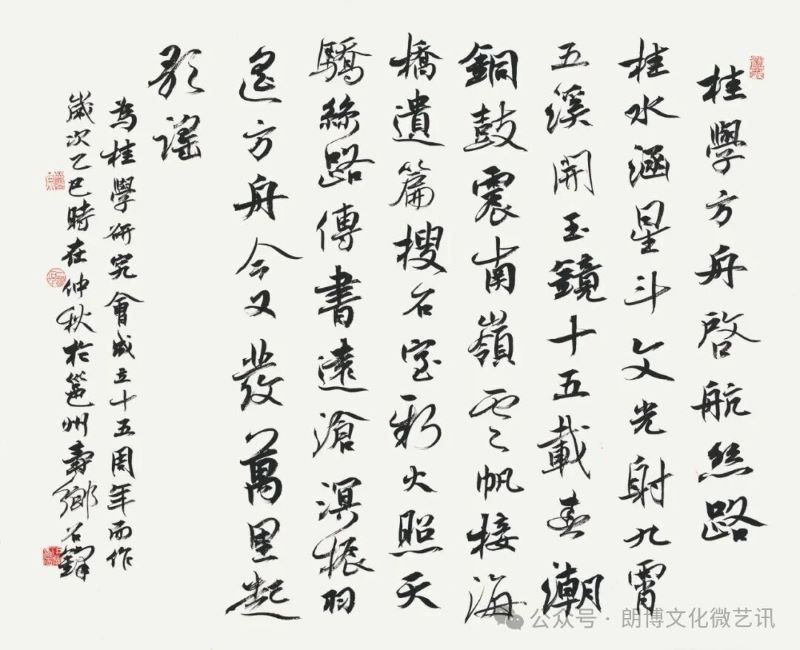 桂學方舟啓航絲路
桂水涵星斗文光射九霄
五溪開玉鏡十五載春潮
銅鼓震南嶺雲帆接海
橋遺篇搜石室新火照天
驕絲路傳書遠滄溟振羽
遥方舟今又發萬里起
歌謠
為桂學研究會成立十五周年而作
歲次乙巳時在仲秋於邕州壽鄉石鐸
公众号·朗博文化微艺讯